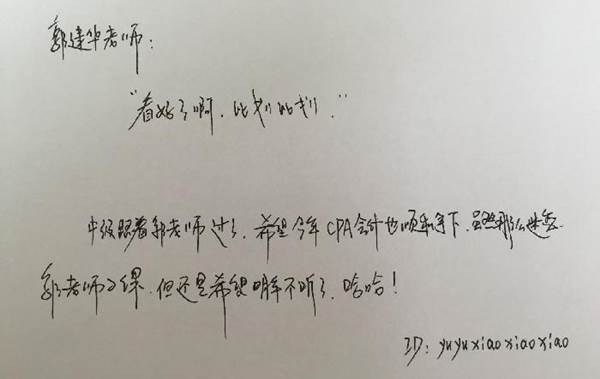 郭建华老师：
"看好了啊，比划比划．"
中级跟着郭老师过了，希望今年CPA会计也顺利拿下，虽然那么迷恋
郭老师的课，但还是希望明年不听了，哈哈！
ID：yuyuxiaoxiaoxiao